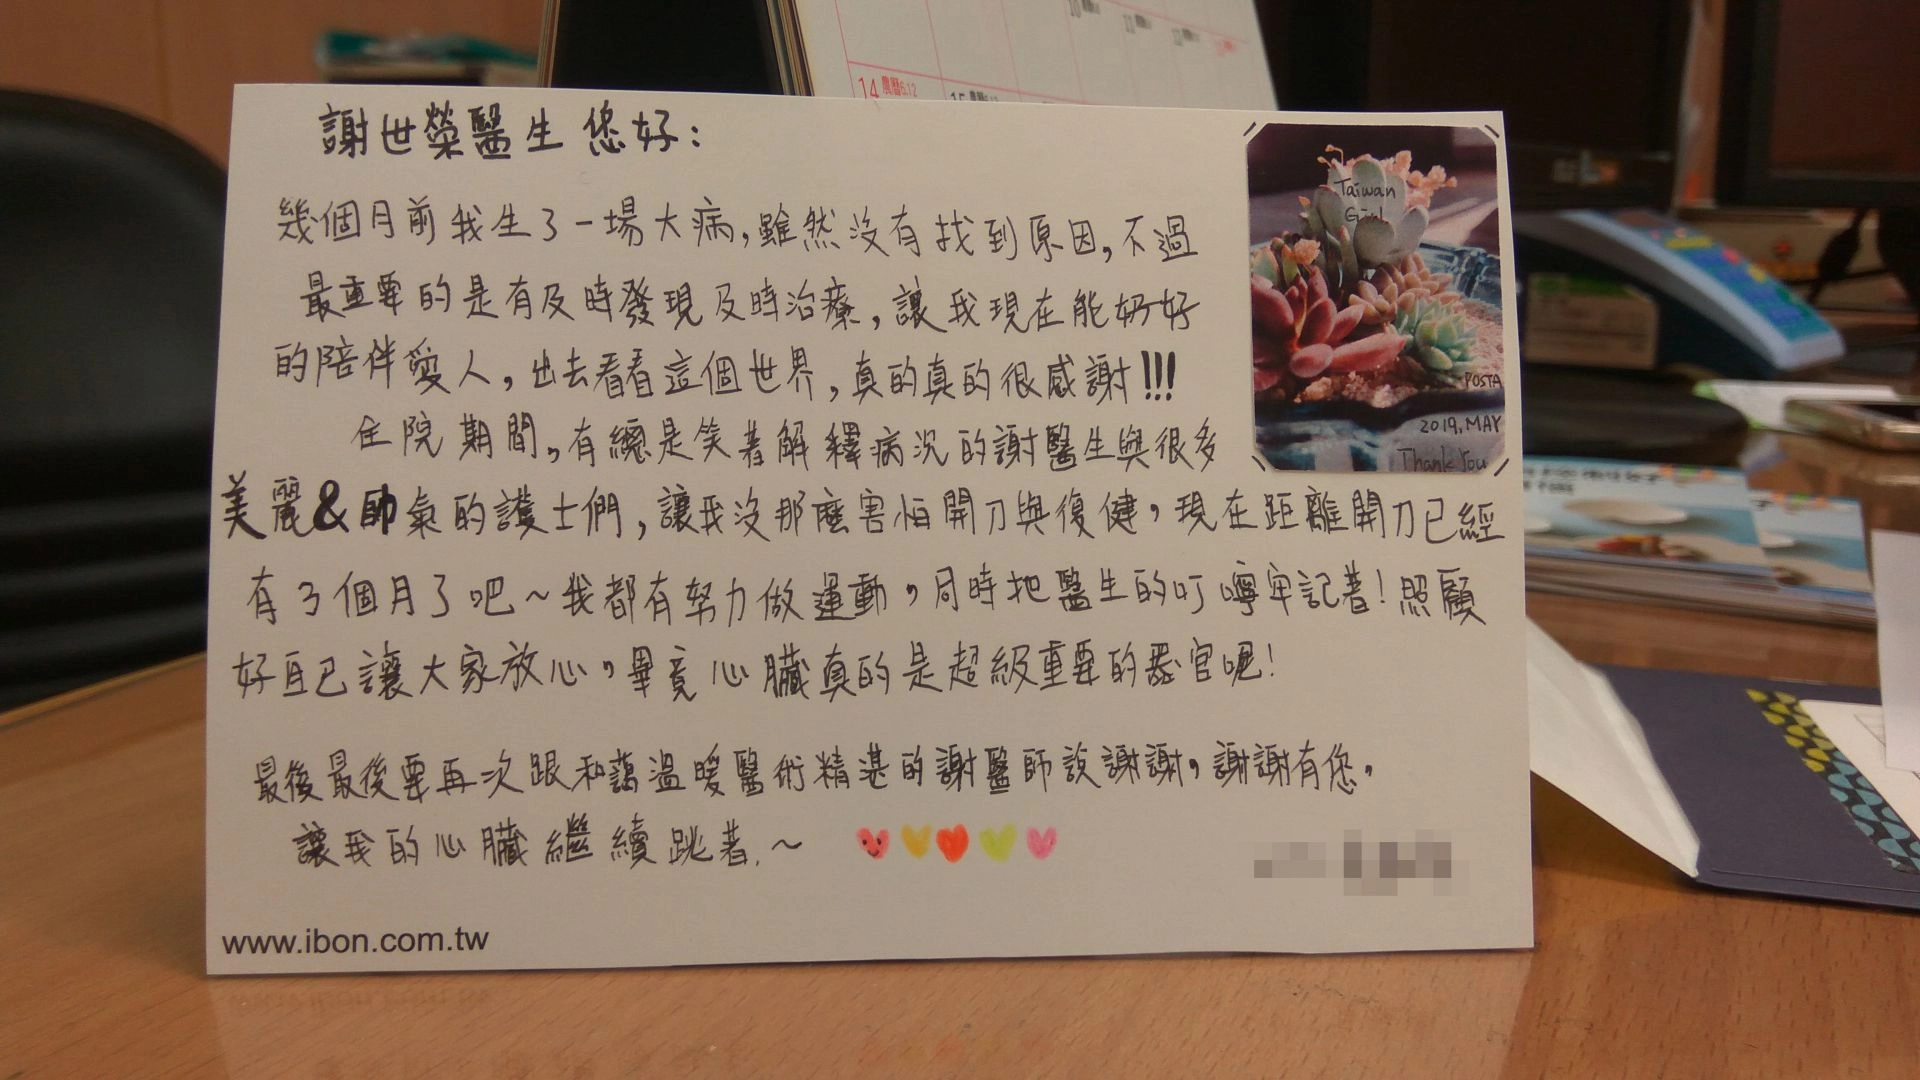 14 農曆6.12
謝世榮醫生 您好：
幾個月前我生了一場大病，雖然沒有找到原因，不過
最重要的是有及時發現及時治療，讓我現在能好好
的陪伴愛人，出去看看這個世界，真的真的很感謝!!!
住院期間，有總是笑著解釋病況的謝醫生與很多
美麗&帥氣的護士們，讓我沒那麼害怕開刀與復健，現在距離開刀已經
有3個月了吧～我都有努力做運動，同時把醫生的叮嚀牢記著！照顧
好自己讓大家放心，畢竟心臟真的是超級重要的器官呢！
最後最後要再次跟和藹溫暖醫術精湛的謝醫師說謝謝，謝謝有您，
讓我的心臟繼續跳著.～
www.ibon.com.tw
Taiwan
Girl
POSTA
2019.MAY
Thank You